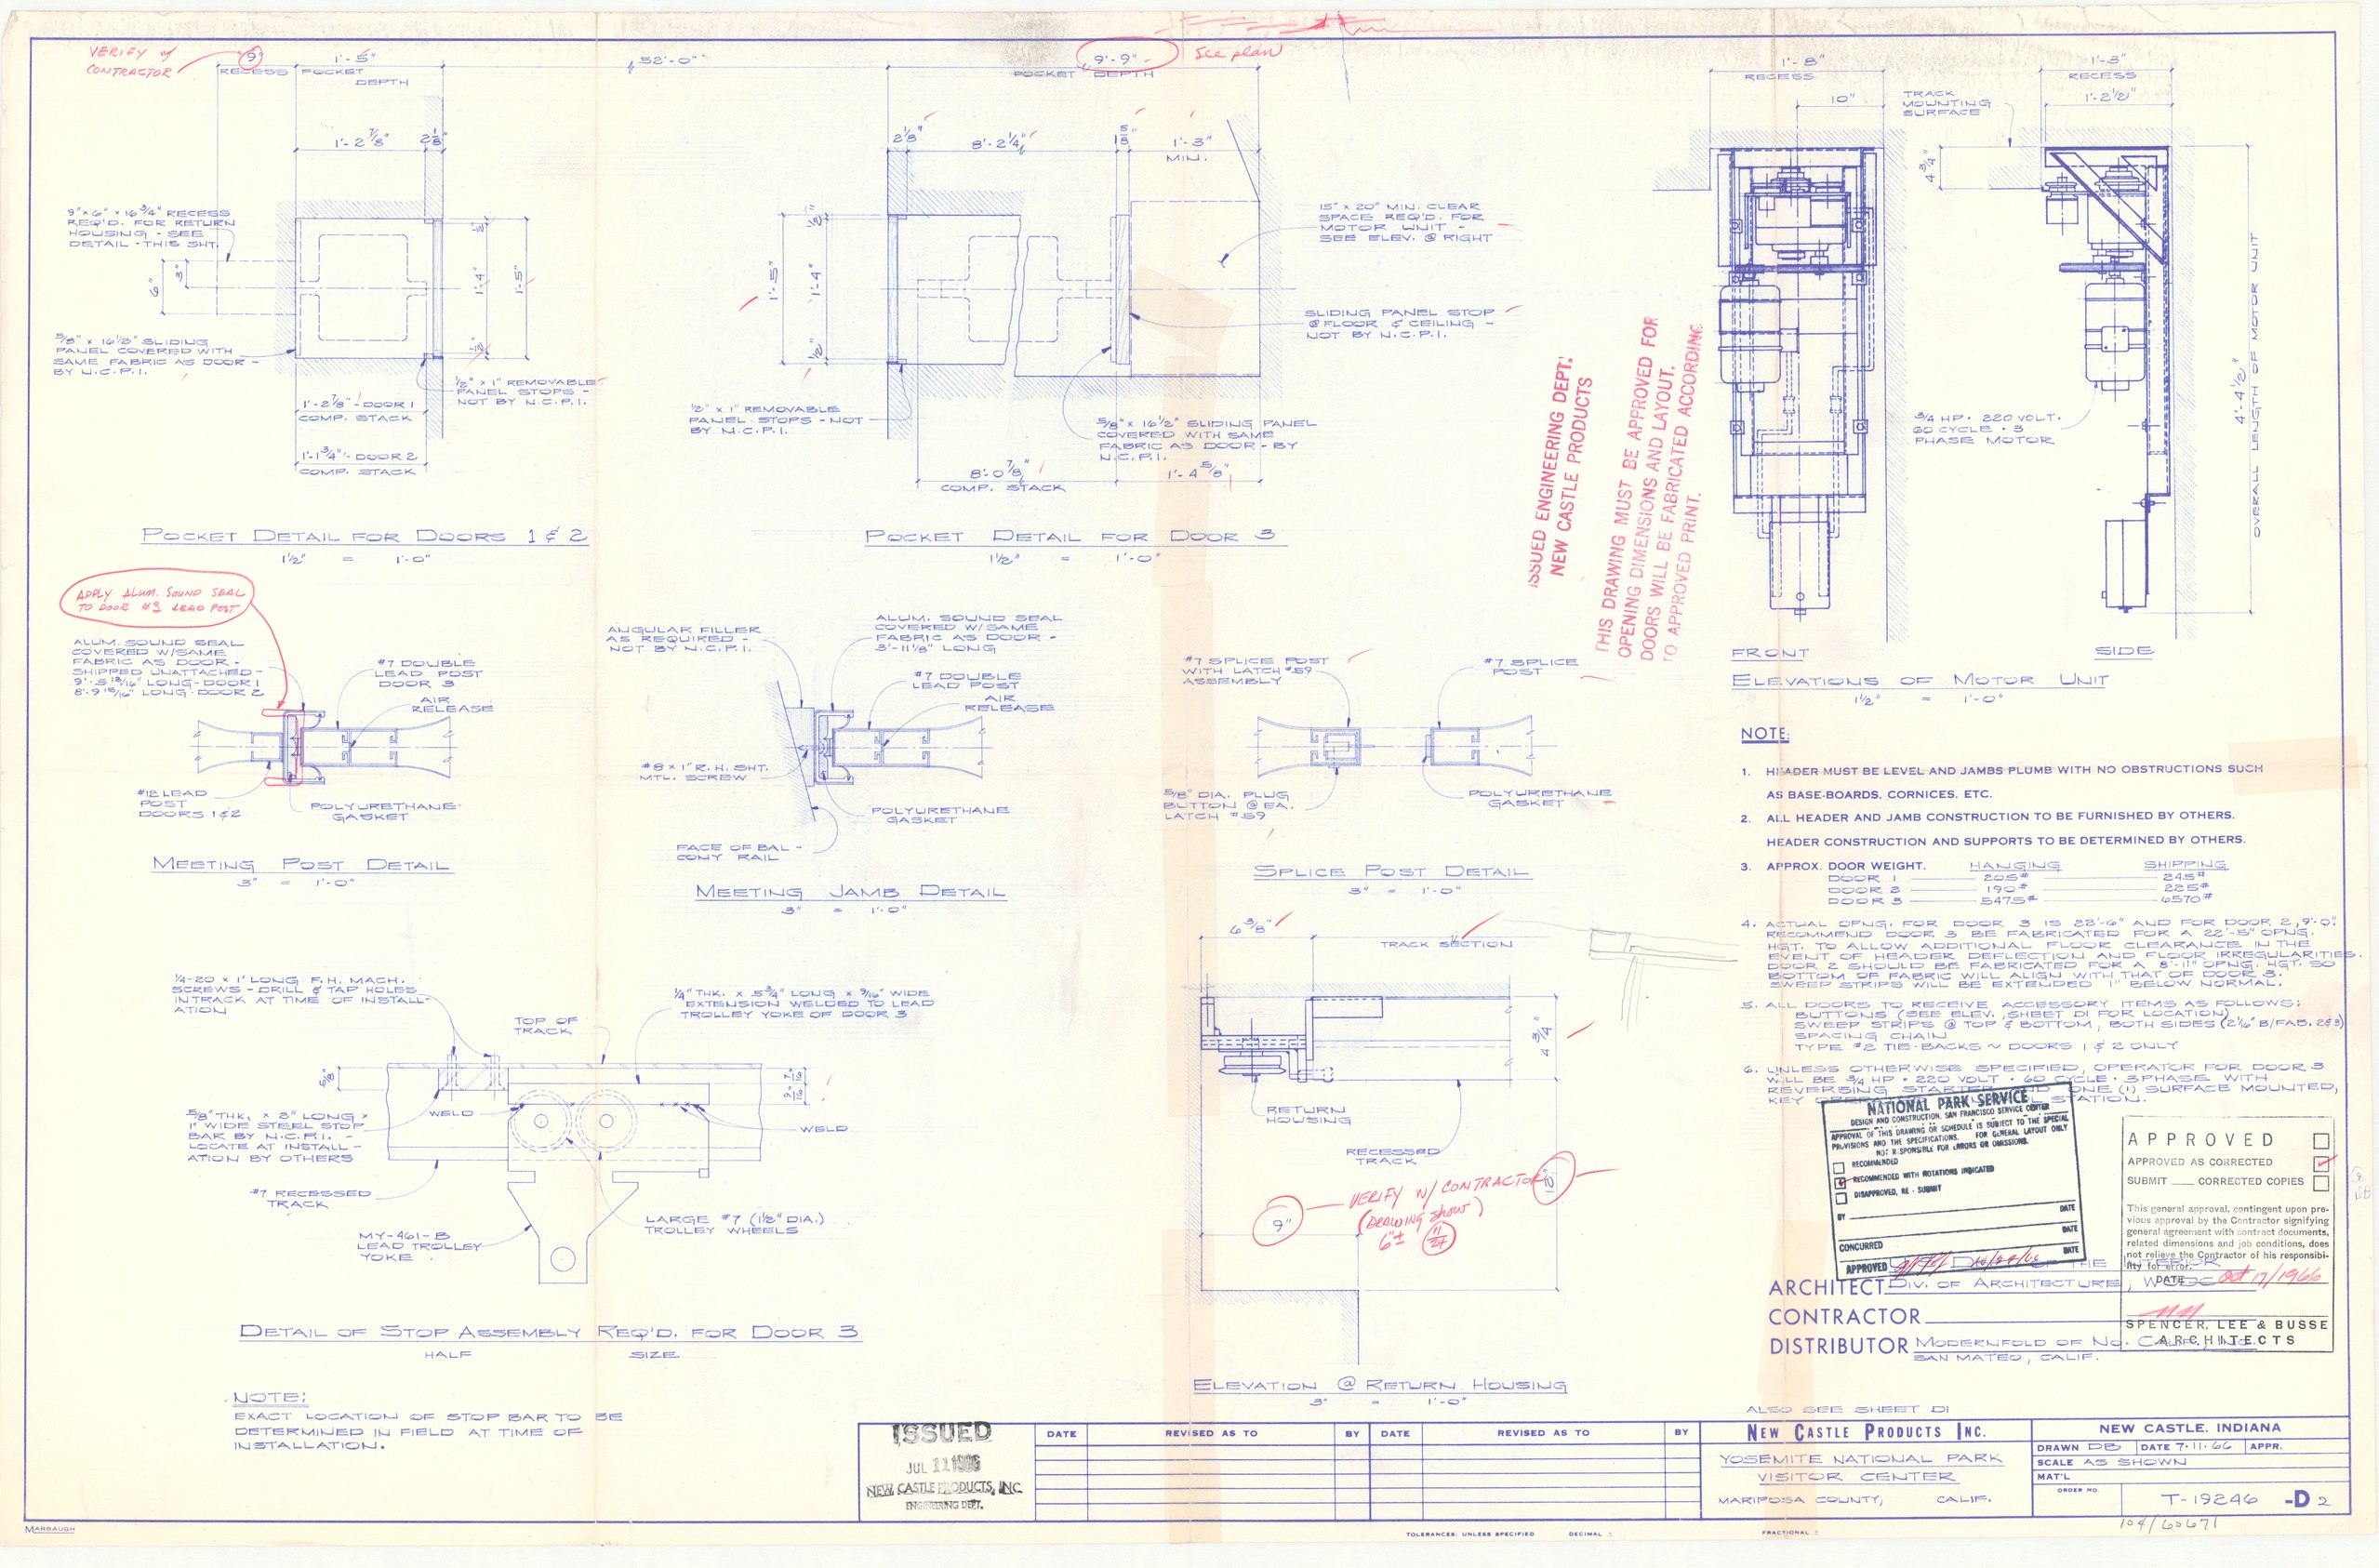 VERIFY w/
CONTRACTOR
9"
RECESS
1'-5"
POCKET
DEPTH
52'-0"
9'-9"
POCKET DEPTH
See plan
1'-2 7/8"
2 1/8"
9" x 6" x 16 3/4" RECESS
REQ'D. FOR RETURN
HOUSING - SEE
DETAIL - THIS SHT.
6"
3"
1/2"
1'-4"
1/2"
1'-5"
5/8" x 16 1/2" SLIDING
PANEL COVERED WITH
SAME FABRIC AS DOOR -
BY N.C.P.I.
1/2" x 1" REMOVABLE
PANEL STOPS -
NOT BY N.C.P.I.
1'-2 7/8" - DOOR 1
COMP. STACK
1'-1 3/4" - DOOR 2
COMP. STACK
POCKET DETAIL FOR DOORS 1 & 2
1 1/2" = 1'-0"
2 1/8"
8'-2 1/4"
1 5/8"
1'-3"
MIN.
1'-5"
1/2"
1'-4"
1/2"
15" x 20" MIN. CLEAR
SPACE REQ'D. FOR
MOTOR UNIT -
SEE ELEV. @ RIGHT
SLIDING PANEL STOP
@ FLOOR & CEILING -
NOT BY N.C.P.I.
1/2" x 1" REMOVABLE
PANEL STOPS - NOT
BY N.C.P.I.
5/8" x 16 1/2" SLIDING PANEL
COVERED WITH SAME
FABRIC AS DOOR - BY
N.C.P.I.
8'-0 7/8"
COMP. STACK
1'-4 5/8"
POCKET DETAIL FOR DOOR 3
1 1/2" = 1'-0"
ISSUED ENGINEERING DEPT.
NEW CASTLE PRODUCTS
THIS DRAWING MUST BE APPROVED FOR
OPENING DIMENSIONS AND LAYOUT.
DOORS WILL BE FABRICATED ACCORDING
TO APPROVED PRINT.
1'-8"
RECESS
10"
TRACK
MOUNTING
SURFACE
1'-3"
RECESS
1'-2 1/2"
4 3/4"
3/4 HP - 220 VOLT -
60 CYCLE - 3
PHASE MOTOR
4'-4 1/2"
OVERALL LENGTH OF MOTOR UNIT
FRONT
SIDE
ELEVATIONS OF MOTOR UNIT
1 1/2" = 1'-0"
APPLY ALUM. SOUND SEAL
TO DOOR #3 LEAD POST
ALUM. SOUND SEAL
COVERED W/SAME
FABRIC AS DOOR -
SHIPPED UNATTACHED -
9'-5 13/16" LONG - DOOR 1
8'-9 15/16" LONG - DOOR 2
#7 DOUBLE
LEAD POST
DOOR 3
AIR
RELEASE
#12 LEAD
POST
DOORS 1 & 2
POLYURETHANE
GASKET
MEETING POST DETAIL
3" = 1'-0"
ANGULAR FILLER
AS REQUIRED -
NOT BY N.C.P.I.
ALUM. SOUND SEAL
COVERED W/SAME
FABRIC AS DOOR -
3'-11 1/8" LONG
#7 DOUBLE
LEAD POST
AIR
RELEASE
#8 x 1" R.H. SHT.
MTL. SCREW
POLYURETHANE
GASKET
FACE OF BAL-
CONY RAIL
MEETING JAMB DETAIL
3" = 1'-0"
#7 SPLICE POST
WITH LATCH #59
ASSEMBLY
#7 SPLICE
POST
5/8" DIA. PLUG
BUTTON @ EA.
LATCH #59
POLYURETHANE
GASKET
SPLICE POST DETAIL
3" = 1'-0"
NOTE:
1. HEADER MUST BE LEVEL AND JAMBS PLUMB WITH NO OBSTRUCTIONS SUCH
AS BASE-BOARDS, CORNICES, ETC.
2. ALL HEADER AND JAMB CONSTRUCTION TO BE FURNISHED BY OTHERS.
HEADER CONSTRUCTION AND SUPPORTS TO BE DETERMINED BY OTHERS.
3. APPROX. DOOR WEIGHT. HANGING SHIPPING
DOOR 1 205# 245#
DOOR 2 190# 225#
DOOR 3 5475# 6570#
4. ACTUAL OPNG. FOR DOOR 3 IS 22'-6" AND FOR DOOR 2, 9'-0".
RECOMMEND DOOR 3 BE FABRICATED FOR A 22'-5" OPNG.
HGT. TO ALLOW ADDITIONAL FLOOR CLEARANCE IN THE
EVENT OF HEADER DEFLECTION AND FLOOR IRREGULARITIES.
DOOR 2 SHOULD BE FABRICATED FOR A 8'-11" OPNG. HGT. SO
BOTTOM OF FABRIC WILL ALIGN WITH THAT OF DOOR 3.
SWEEP STRIPS WILL BE EXTENDED 1" BELOW NORMAL.
5. ALL DOORS TO RECEIVE ACCESSORY ITEMS AS FOLLOWS:
BUTTONS (SEE ELEV., SHEET D1 FOR LOCATION)
SWEEP STRIPS @ TOP & BOTTOM, BOTH SIDES (2 1/16" B/FAB. 2&3)
SPACING CHAIN
TYPE #2 TIE-BACKS ~ DOORS 1 & 2 ONLY
6. UNLESS OTHERWISE SPECIFIED, OPERATOR FOR DOOR 3
WILL BE 3/4 HP - 220 VOLT - 60 CYCLE - 3 PHASE WITH
REVERSING STARTER AND ONE (1) SURFACE MOUNTED,
KEY STATION.
1/4-20 x 1" LONG F.H. MACH.
SCREWS - DRILL & TAP HOLES
IN TRACK AT TIME OF INSTALL-
ATION
TOP OF
TRACK
1/4" THK. x 5 3/4" LONG x 9/16" WIDE
EXTENSION WELDED TO LEAD
TROLLEY YOKE OF DOOR 3
5/8"
7/16
9/16
WELD
WELD
5/8" THK. x 2" LONG x
1" WIDE STEEL STOP
BAR BY N.C.P.I. -
LOCATE AT INSTALL-
ATION BY OTHERS
#7 RECESSED
TRACK
MY-461-B
LEAD TROLLEY
YOKE
LARGE #7 (1 1/2" DIA.)
TROLLEY WHEELS
DETAIL OF STOP ASSEMBLY REQ'D. FOR DOOR 3
HALF SIZE
NOTE:
EXACT LOCATION OF STOP BAR TO BE
DETERMINED IN FIELD AT TIME OF
INSTALLATION.
6 3/8"
TRACK SECTION
4 3/4"
RETURN
HOUSING
RECESSED
TRACK
9"
VERIFY W/ CONTRACTOR
(DRAWING SHOW)
6"±
11/24
ELEVATION @ RETURN HOUSING
3" = 1'-0"
NATIONAL PARK SERVICE
DESIGN AND CONSTRUCTION, SAN FRANCISCO SERVICE CENTER
APPROVAL OF THIS DRAWING OR SCHEDULE IS SUBJECT TO THE SPECIAL
PROVISIONS AND THE SPECIFICATIONS. FOR GENERAL LAYOUT ONLY
NOT RESPONSIBLE FOR ERRORS OR OMISSIONS.
RECOMMENDED
RECOMMENDED WITH NOTATIONS INDICATED
DISAPPROVED, RE-SUBMIT
BY DATE
CONCURRED DATE
APPROVED DATE
APPROVED
APPROVED AS CORRECTED
SUBMIT ___ CORRECTED COPIES
This general approval, contingent upon pre-
vious approval by the Contractor signifying
general agreement with contract documents,
related dimensions and job conditions, does
not relieve the Contractor of his responsibi-
lity for error.
DATE Oct 17/1966
SPENCER, LEE & BUSSE
ARCHITECTS
OF THE INTERIOR
ARCHITECT DIV. OF ARCHITECTURE,
CONTRACTOR
DISTRIBUTOR MODERNFOLD OF NO. CALIF.
SAN MATEO, CALIF.
ALSO SEE SHEET D1
ISSUED
JUL 11 1966
NEW CASTLE PRODUCTS, INC.
ENGINEERING DEPT.
DATE REVISED AS TO BY DATE REVISED AS TO BY
NEW CASTLE PRODUCTS INC.
YOSEMITE NATIONAL PARK
VISITOR CENTER
MARIPOSA COUNTY, CALIF.
NEW CASTLE, INDIANA
DRAWN DB DATE 7-11-66 APPR.
SCALE AS SHOWN
MAT'L
ORDER NO.
T-19246 -D2
104/60671
MARBAUGH
TOLERANCES: UNLESS SPECIFIED DECIMAL ± FRACTIONAL ±